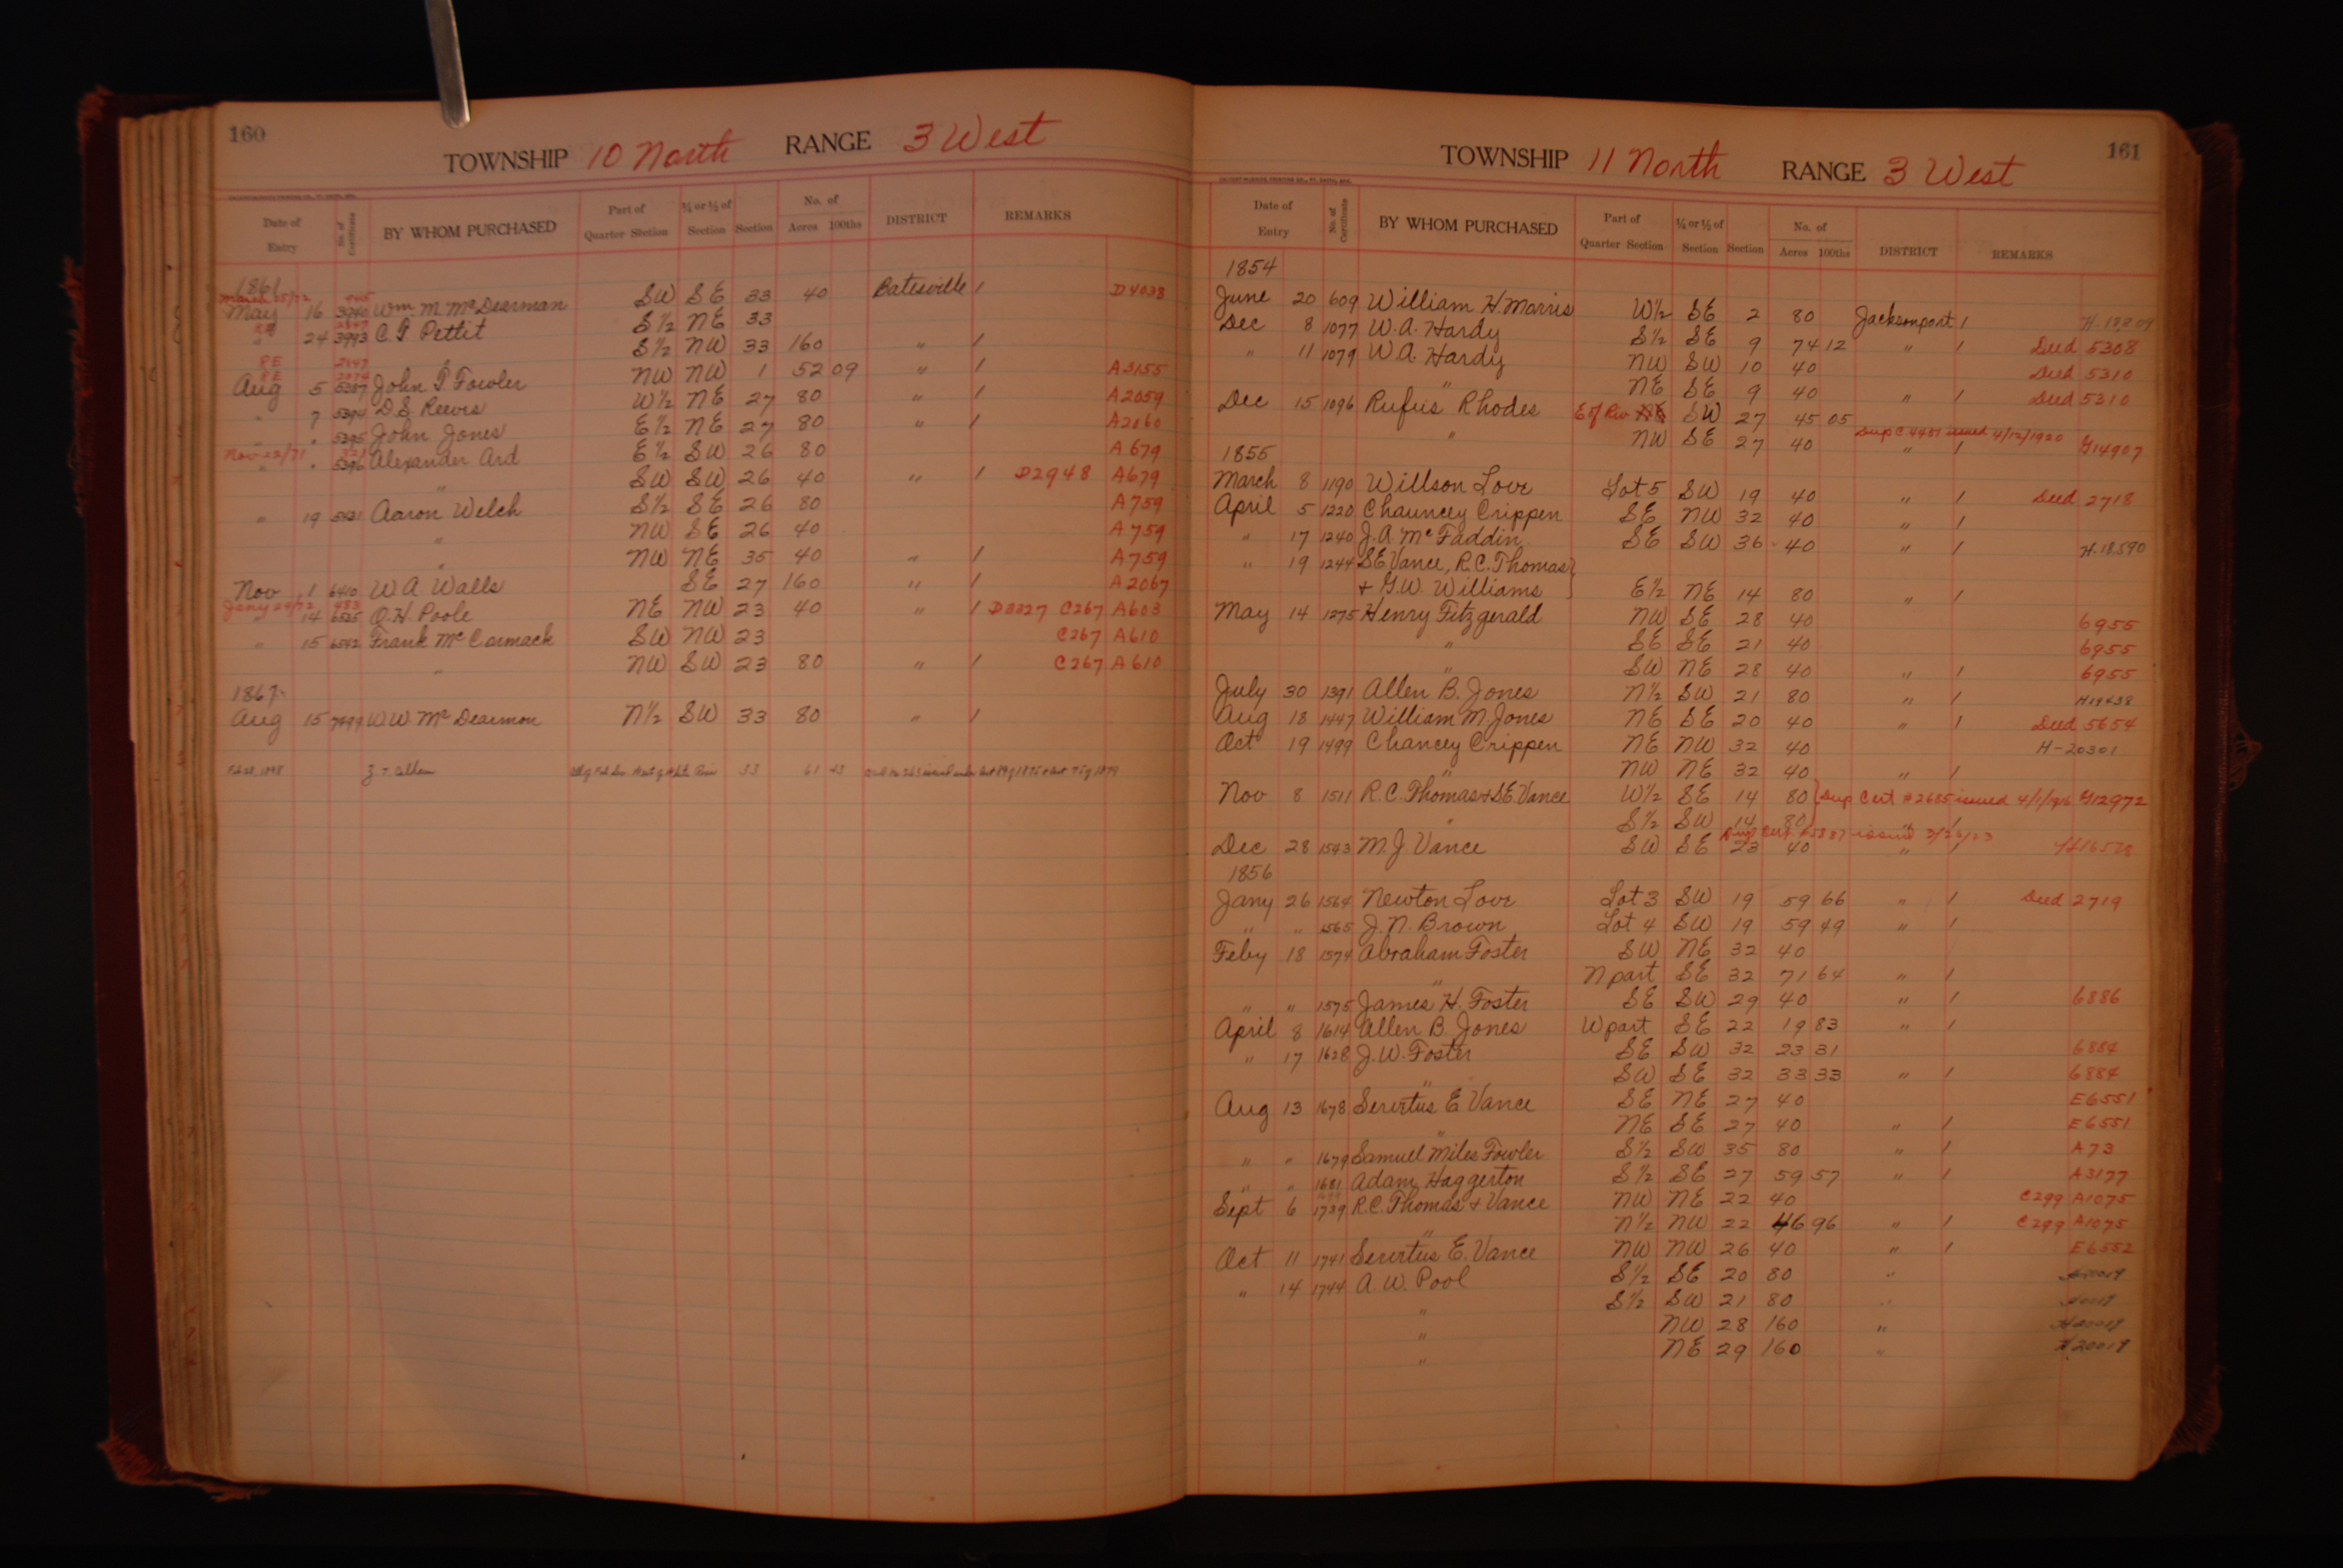 160
TOWNSHIP 10 North RANGE 3 West
Date of Entry No. of Certificate BY WHOM PURCHASED Part of Quarter Section ¼ or ½ of Section Section No. of Acres 100ths DISTRICT REMARKS
1861
March 25/72
May 16 3740 Wm. M. McDearman SW SE 33 40 Batesville / D4038
" 24 3993 C T Pettit S½ NE 33
S½ NW 33 160 " /
Aug 5 5387 John T Fowler NW NW 1 52 09 " / A3155
" 7 5394 D.S. Reeves W½ NE 27 80 " / A2059
" " 5395 John Jones E½ NE 27 80 " / A2060
Nov 22/71
" " 5396 Alexander Ard E½ SW 26 80 A679
" SW SW 26 40 " / D2948 A679
" 19 Aaron Welch S½ SE 26 80 A759
" NW SE 26 40 A759
" NW NE 35 40 " / A759
Nov 1 6410 W A Walls SE 27 160 " / A2067
Jany 24/72 483
14 6525 O.H. Poole NE NW 23 40 " / D3327 C267 A603
" 15 6542 Frank McCormack SW NW 23 C267 A610
" NW SW 23 80 " / C267 A610
1867
Aug 15 7499 W W McDearmon N½ SW 33 80 " /
33 61 43
161
TOWNSHIP 11 North RANGE 3 West
Date of Entry No. of Certificate BY WHOM PURCHASED Part of Quarter Section ¼ or ½ of Section Section No. of Acres 100ths DISTRICT REMARKS
1854
June 20 609 William H. Morris W½ SE 2 80 Jacksonport /
Dec 8 1077 W.A. Hardy S½ SE 9 74 12 " / Deed 5308
" 11 1079 W.A. Hardy NW SW 10 40 Deed 5310
" NE SE 9 40 " / Deed 5310
Dec 15 1096 Rufus Rhodes E of Riv SW 27 45 05
Dup C. 4481 issued 4/12/1920
" NW SE 27 40 " / G14907
1855
March 8 1190 Willson Love Lot 5 SW 19 40 " / Deed 2718
April 5 1220 Chauncey Crippen SE NW 32 40 " /
" 17 1240 J.A. McFaddin SE SW 36 40 " / H-18590
" 19 1244 S E Vance, R.C. Thomas
+ G.W. Williams E½ NE 14 80 " /
May 14 1275 Henry Fitzgerald NW SE 28 40 6955
" SE SE 21 40 6955
" SW NE 28 40 " / 6955
July 30 1391 Allen B. Jones N½ SW 21 80 " /
Aug 18 1447 William M. Jones NE SE 20 40 " / Deed 5654
Oct 19 1499 Chancey Crippen NE NW 32 40 H-20301
" NW NE 32 40 " /
Nov 8 1511 R.C. Thomas + S.E. Vance W½ SE 14 80 Dup Cert #2685 issued 4/1/1916 G12972
" S½ SW 14 80 " /
Dup Cert. #5387 issued 3/26/23
Dec 28 1543 M.J. Vance SW SE 23 40 " /
1856
Jany 26 1564 Newton Love Lot 3 SW 19 59 66 " / Deed 2719
" " 1565 J.N. Brown Lot 4 SW 19 59 49 " /
Feby 18 1574 Abraham Foster SW NE 32 40
" N part SE 32 71 64 " /
" " 1575 James H. Foster SE SW 29 40 " / 6886
April 8 1614 Allen B. Jones W part SE 22 19 83 " /
" 17 1628 J.W. Foster SE SW 32 23 31 6884
" SW SE 32 33 33 " / 6884
Aug 13 1678 Servetus E Vance SE NE 27 40 E6551
" NE SE 27 40 " / E6551
" " 1679 Samuel Miles Fowler S½ SW 35 80 " / A73
" " 1681 Adam Haggerton S½ SE 27 59 57 " / A3177
Sept 6 1739 R.C. Thomas + Vance NW NE 22 40 C299 A1075
" N½ NW 22 46 96 " / C299 A1075
Oct 11 1741 Servetus E. Vance NW NW 26 40 " / E6552
" 14 1744 A.W. Pool S½ SE 20 80 "
" S½ SW 21 80 "
" NW 28 160 " H20019
" NE 29 160 " H20019